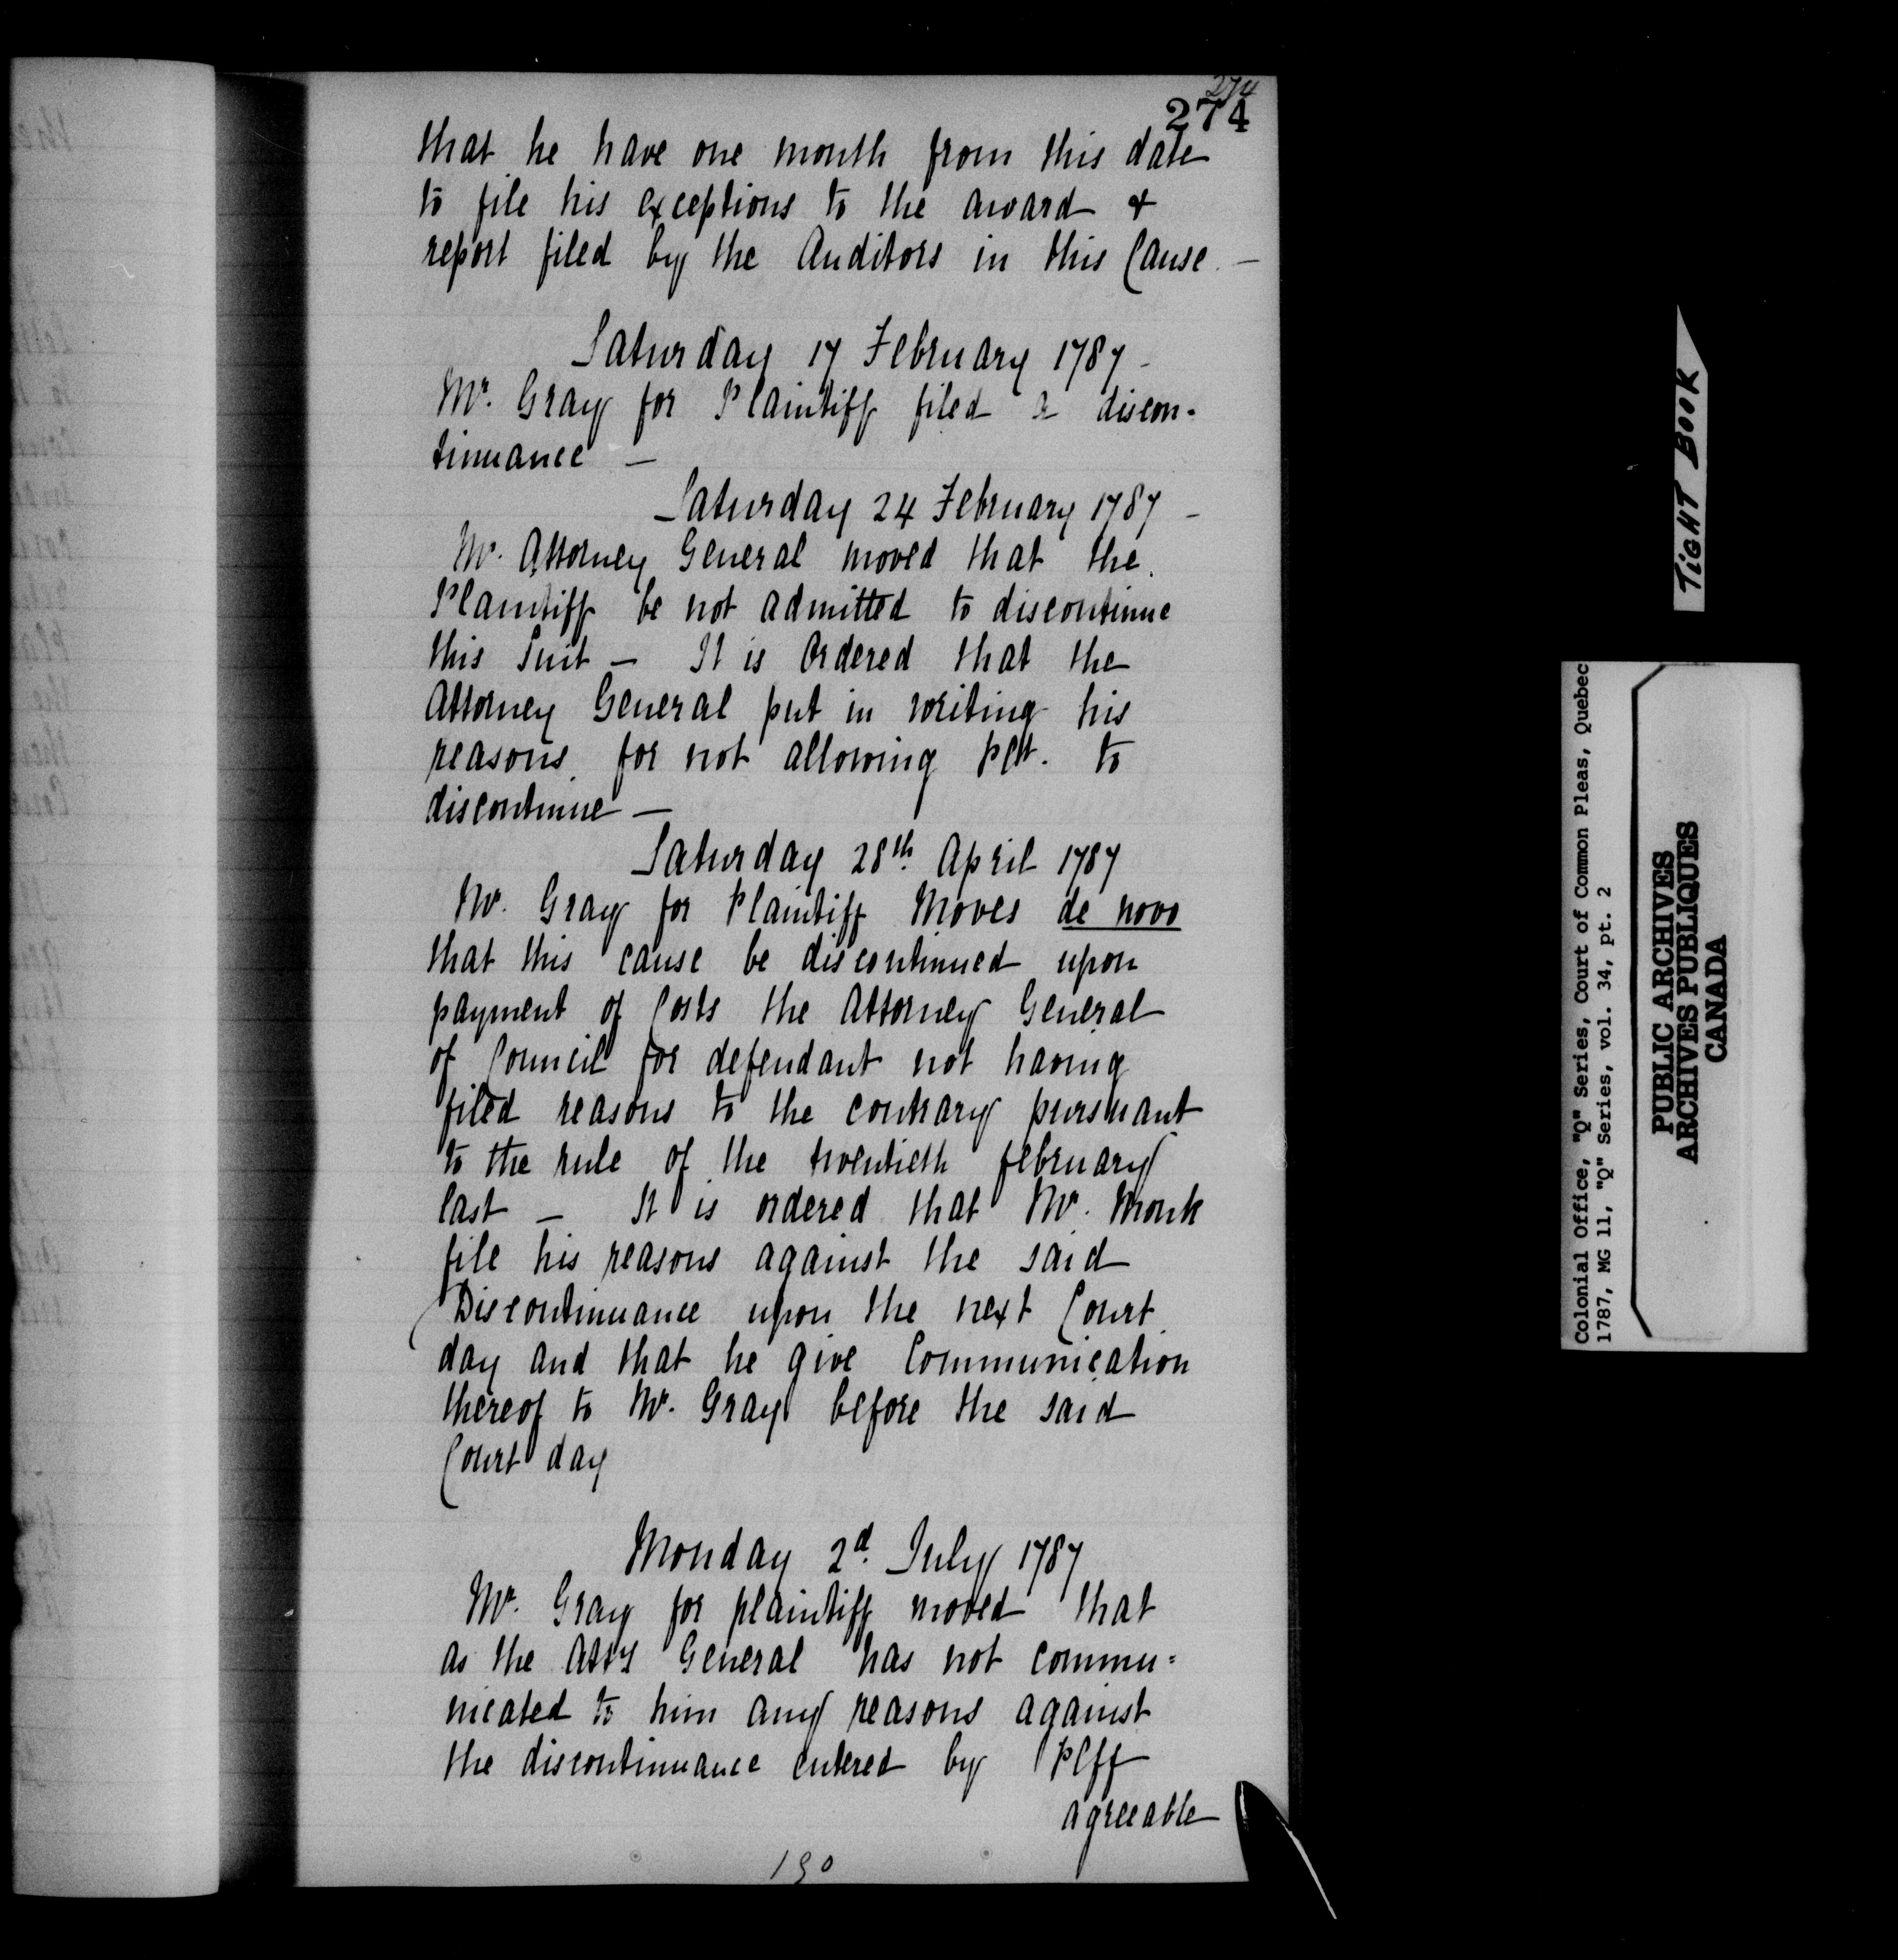 274
274
that he have one month from this date
to file his exceptions to the award &
report filed by the Auditors in this Cause. —
Saturday 17 February 1787 -
Mr. Gray for Plaintiff filed a discon-
tinuance —
Saturday 24 February 1787 -
Mr. Attorney General moved that the
Plaintiff be not admitted to discontinue
this Suit — It is Ordered that the
Attorney General put in writing his
reasons for not allowing Plt. to
discontinue —
Saturday 28th April 1787
Mr. Gray for Plaintiff Moves de novo
that this cause be discontinued upon
payment of Costs the Attorney General
of Council for defendant not having
filed reasons to the contrary pursuant
to the rule of the twentieth february
last — It is ordered that Mr. Monk
file his reasons against the said
Discontinuance upon the next Court
day and that he give Communication
thereof to Mr. Gray before the said
Court day
Monday 2d. July 1787
Mr. Gray for plaintiff moved that
as the Atty General has not commu=
nicated to him any reasons against
the discontinuance entered by Plff
agreeable
190
TIGHT BOOK
Colonial Office, "Q" Series, Court of Common Pleas, Quebec
1787, MG 11, "Q" Series, vol. 34, pt. 2
PUBLIC ARCHIVES
ARCHIVES PUBLIQUES
CANADA